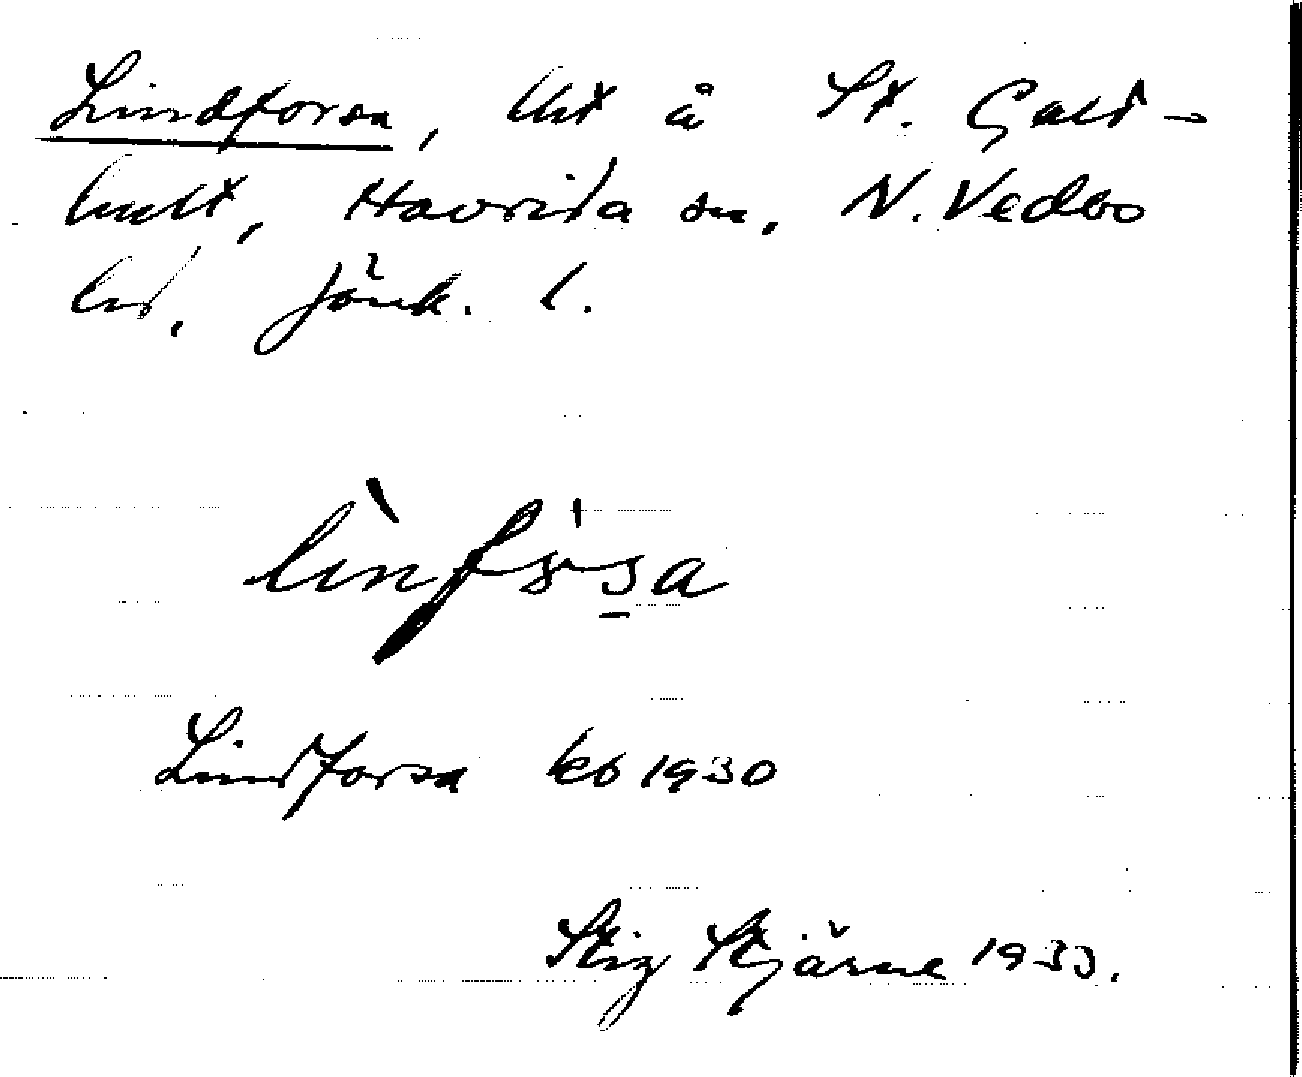 Lindforsa, lht å St. Galt-
hult, Haurida sn, N. Vedbo
hd, Jönk. l.
lìnfösa
Lindforsa kb 1930
Stig Stjärne 1933.